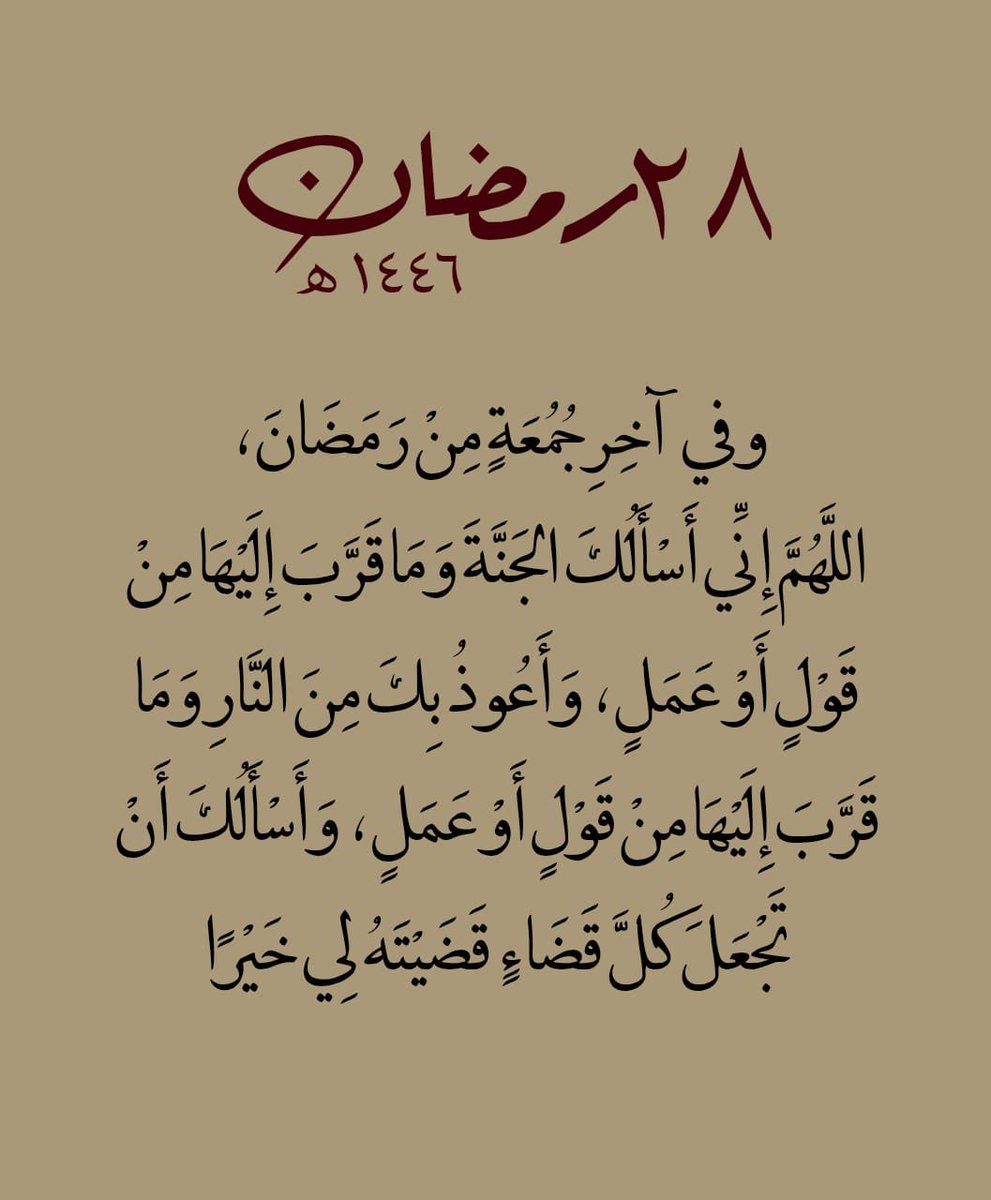 ٢٨ رمضان
١٤٤٦ هـ
وفي آخِرِ جُمُعَةٍ مِنْ رَمَضَانَ،
اللَّهُمَّ إِنِّي أَسْأَلُكَ الجَنَّةَ وَمَا قَرَّبَ إِلَيْهَا مِنْ
قَوْلٍ أَوْ عَمَلٍ، وَأَعُوذُ بِكَ مِنَ النَّارِ وَمَا
قَرَّبَ إِلَيْهَا مِنْ قَوْلٍ أَوْ عَمَلٍ، وَأَسْأَلُكَ أَنْ
تَجْعَلَ كُلَّ قَضَاءٍ قَضَيْتَهُ لِي خَيْرًا